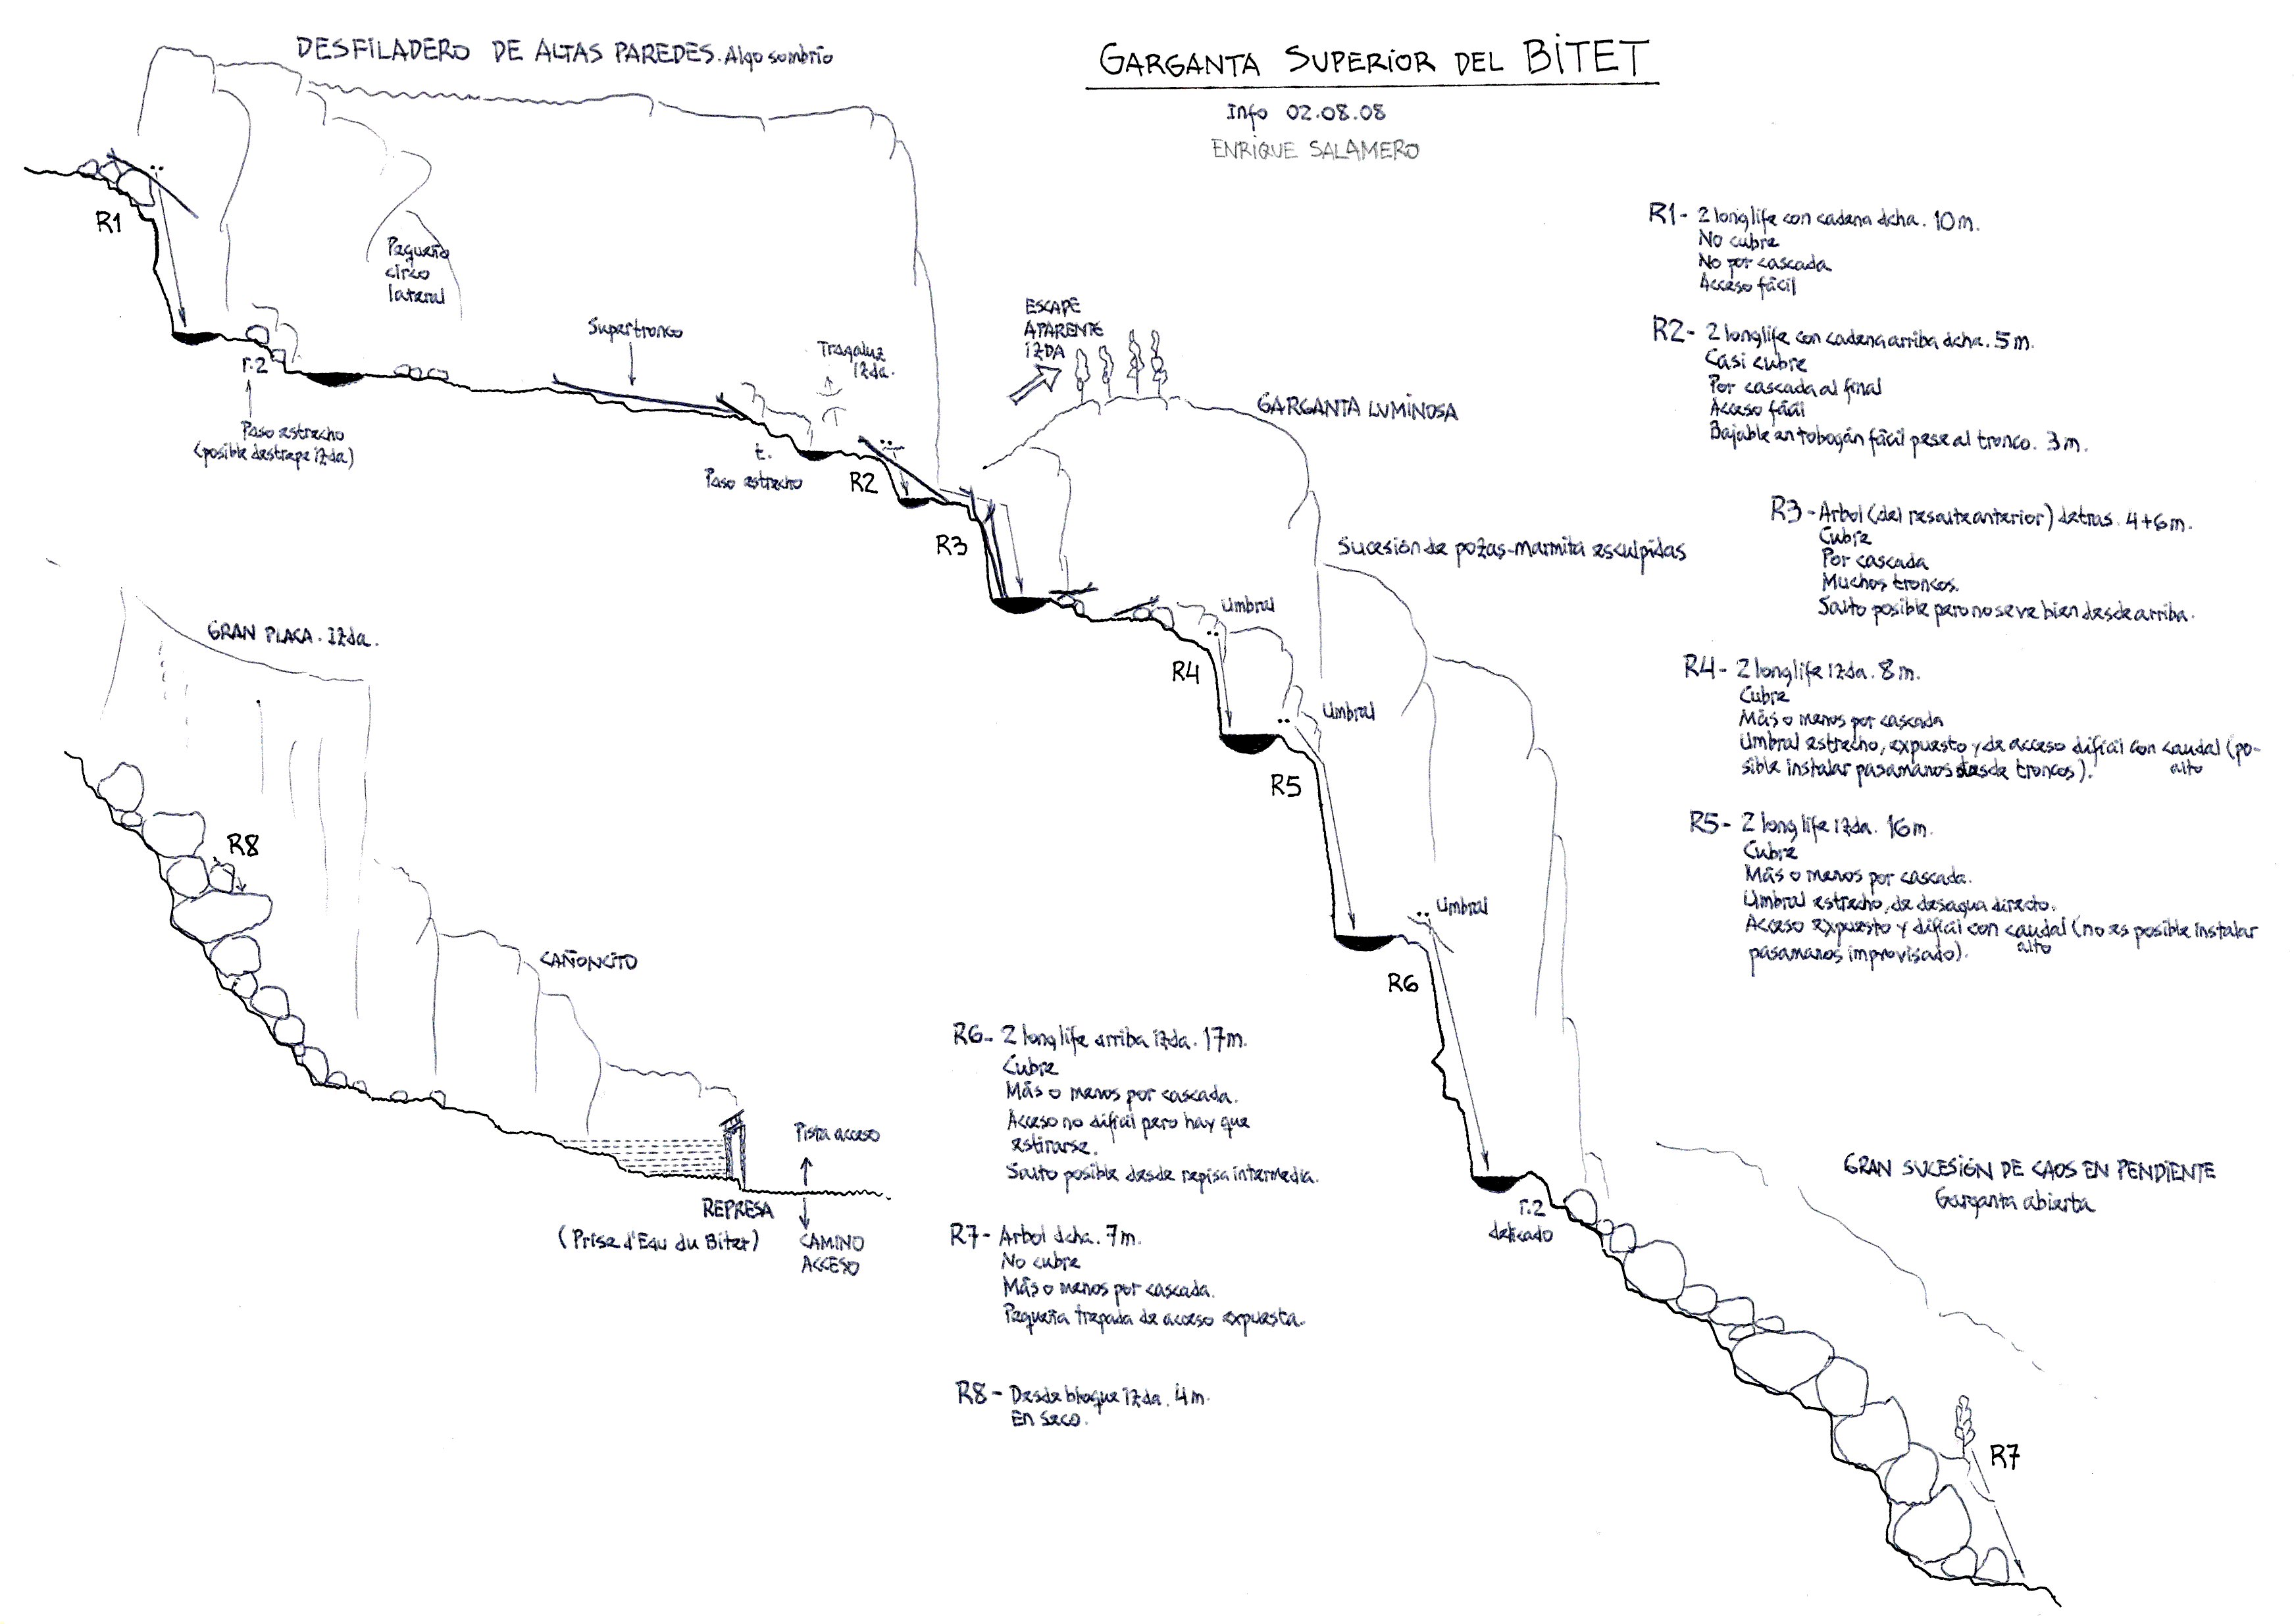 DESFILADERO DE ALTAS PAREDES. Algo sombrío
GARGANTA SUPERIOR DEL BITET
Info 02.08.08
ENRIQUE SALAMERO
R1
Pequeño
circo
lateral
r.2
Paso estrecho
(posible destrepe izda)
Supertronco
Tragaluz
izda.
t.
Paso estrecho
R2
ESCAPE
APARENTE
IZDA
GARGANTA LUMINOSA
R3
Sucesión de pozas-marmita esculpidas
Umbral
R4
Umbral
R5
Umbral
R6
r.2
delicado
GRAN SUCESIÓN DE CAOS EN PENDIENTE
Garganta abierta
R7
GRAN PLACA. Izda.
R8
CAÑONCITO
Pista acceso
REPRESA
(Prise d'Eau du Bitet)
CAMINO
ACCESO
R1- 2 longlife con cadena dcha. 10m.
No cubre
No por cascada
Acceso fácil
R2- 2 longlife con cadena arriba dcha. 5m.
Casi cubre
Por cascada al final
Acceso fácil
Bajable en tobogán fácil pese al tronco. 3m.
R3- Arbol (del resalte anterior) detras. 4+6m.
Cubre
Por cascada
Muchos troncos.
Salto posible pero no se ve bien desde arriba.
R4- 2 longlife izda. 8m.
Cubre
Más o menos por cascada
Umbral estrecho, expuesto y de acceso difícil con caudal (po-
alto
sible instalar pasamanos desde troncos).
R5- 2 longlife izda. 16m.
Cubre
Más o menos por cascada.
Umbral estrecho, de desagua directo.
Acceso expuesto y difícil con caudal (no es posible instalar
alto
pasamanos improvisado).
R6- 2 longlife arriba izda. 17m.
Cubre
Más o menos por cascada.
Acceso no difícil pero hay que
estirarse.
Salto posible desde repisa intermedia.
R7- Arbol dcha. 7m.
No cubre
Más o menos por cascada.
Pequeña trepada de acceso expuesta.
R8- Desde bloque izda. 4m.
En seco.